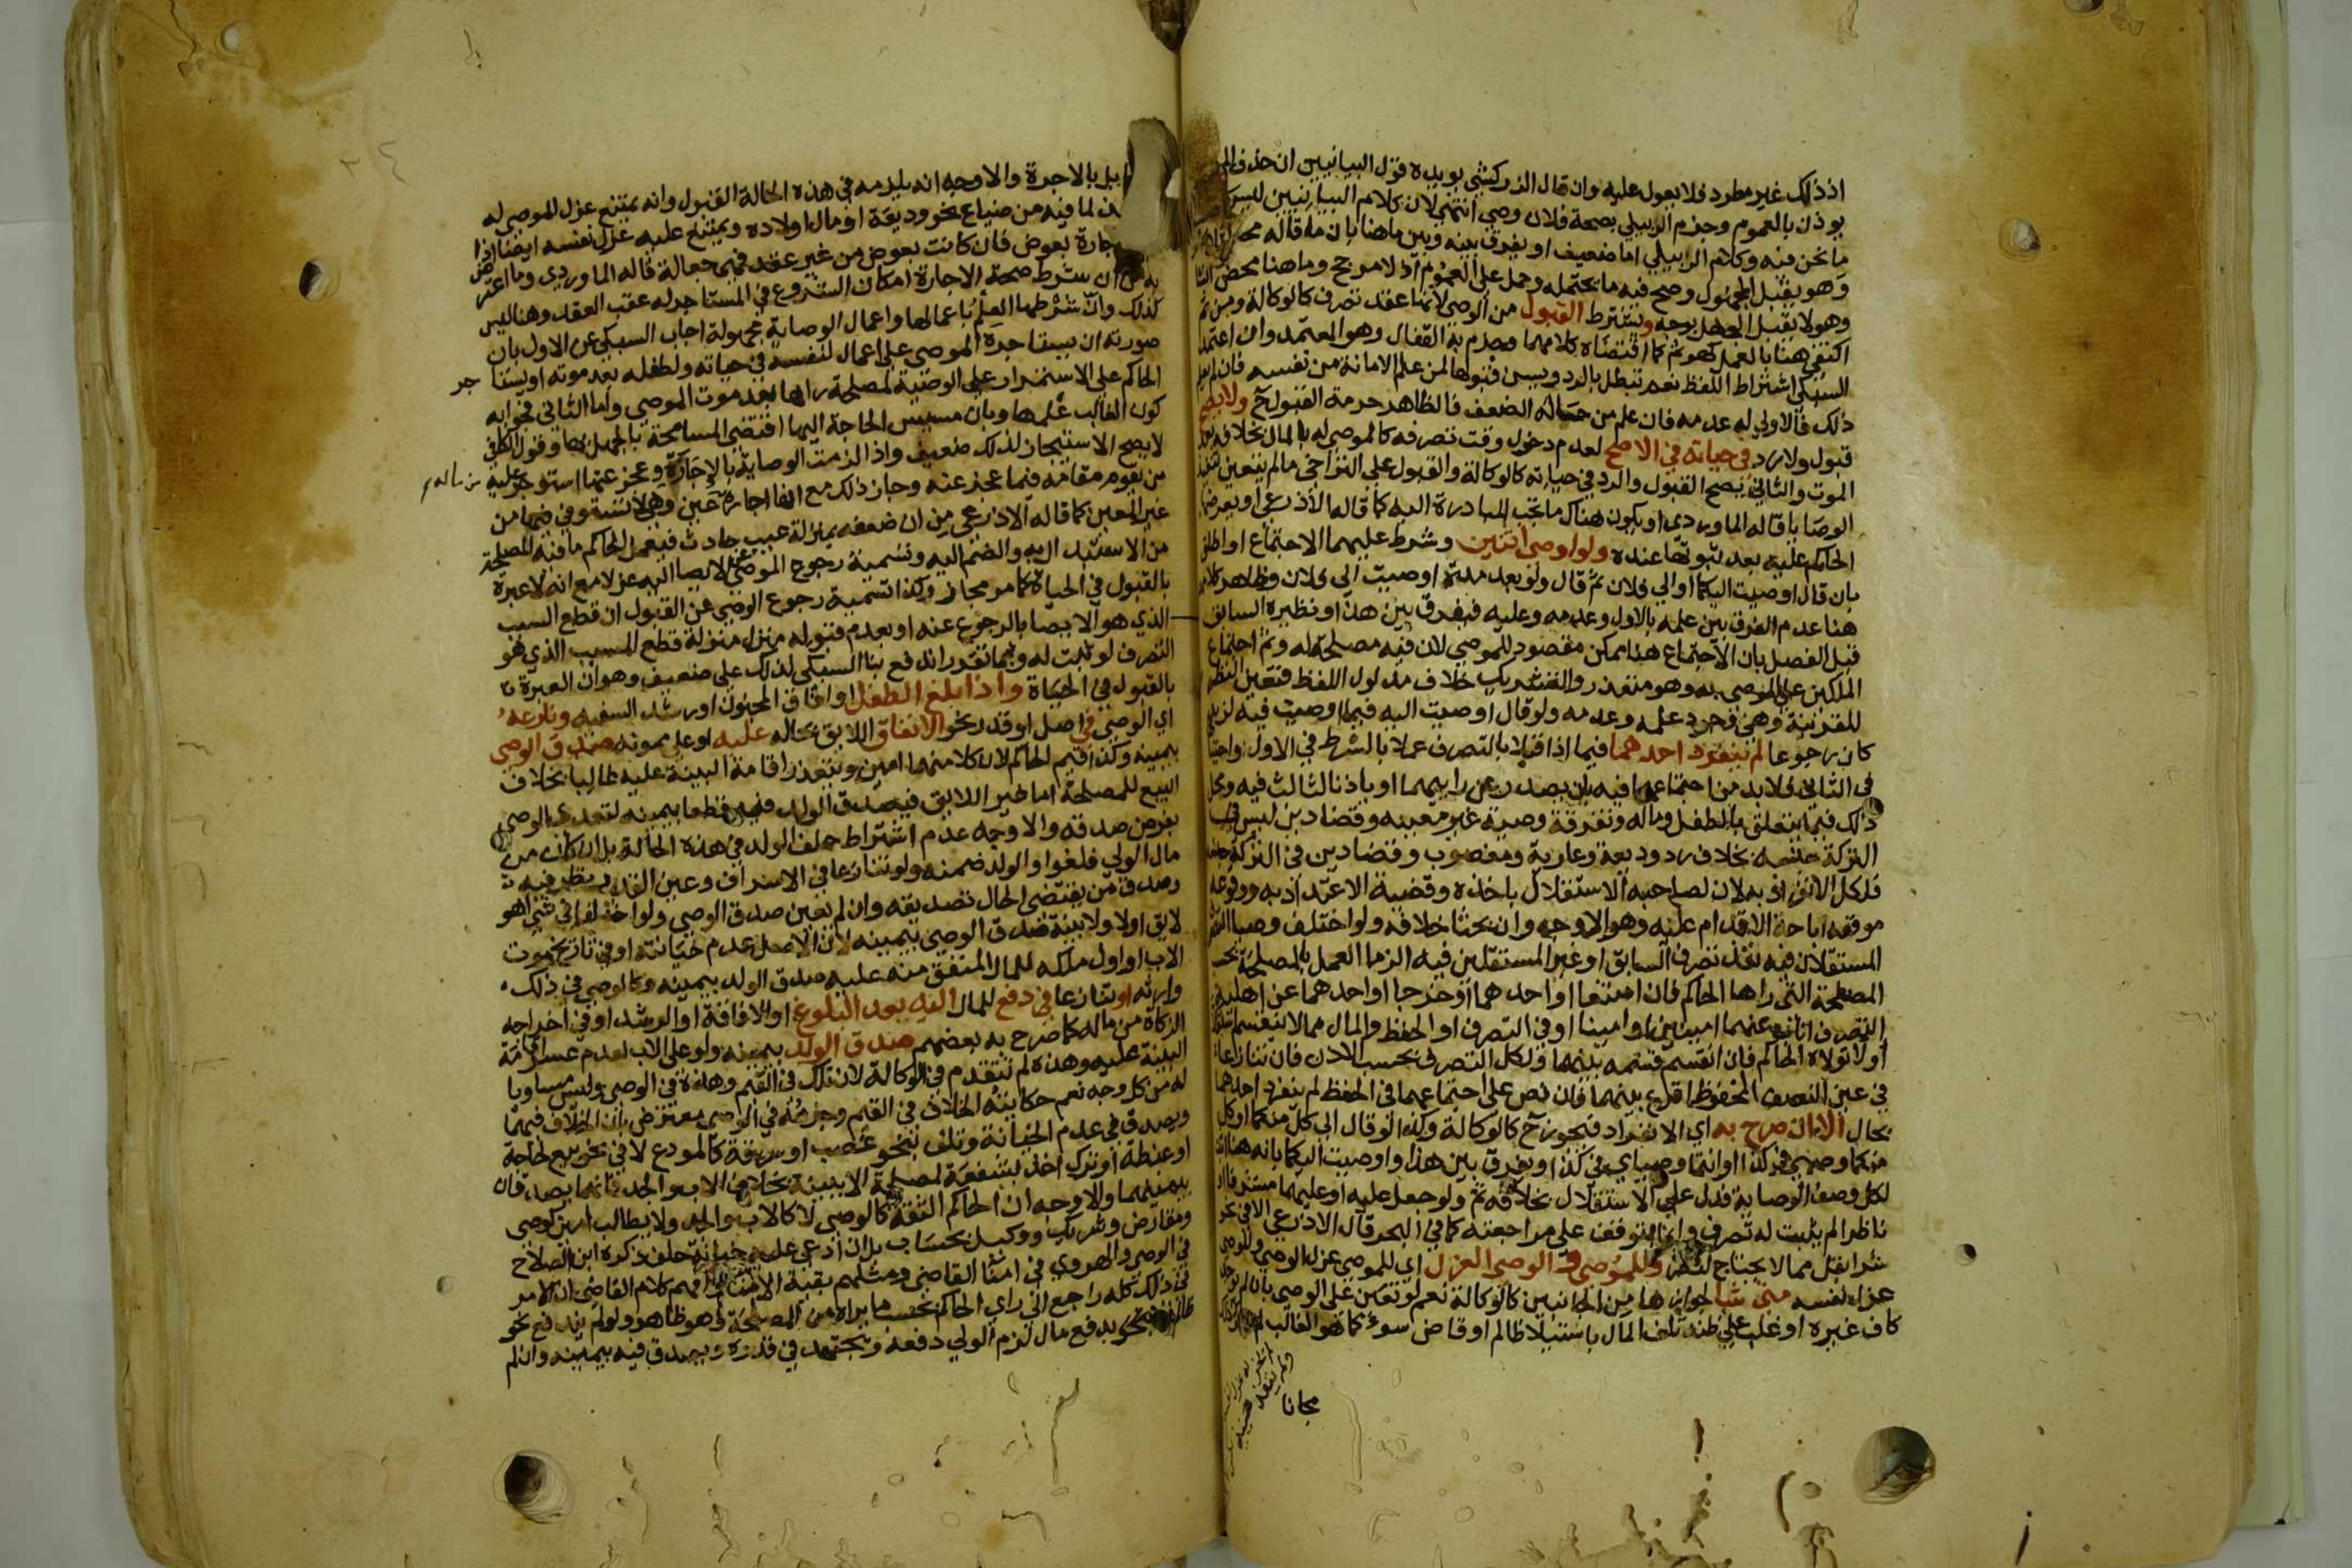 اذ ذلك غير مطرد فلا يعول عليه وان قال الزركشي يويده قول البيانيين ان حذف
يوذن بالعموم وجزم الزبيلي بصحة فلان وصي انتهى لان كلام البيانيين ليس
ما نحن فيه وكلام الزبيلي اما ضعيف او يفرق بينه وبين ما هنا بان ما قاله
وهو يقبل المجهول وصح فيه ما يحتمله وحمل على العموم اذ لا مرجح وما هنا محض
وهو لا يقبل الجهل بوجه ويشترط القبول من الوصي لانها عقد تصرف كالوكالة ومن ثم
اكتفى هنا بالعمل كهو ثم كما اقتضاه كلامهما وصرم به القفال وهو المعتمد وان اعتمد
السبكي اشتراط اللفظ نعم تبطل بالرد ويسن قبولها لمن علم الامانة من نفسه فان لم يعلم
ذلك فالاولى له عدمه فان علم من حاله الضعف فالظاهر حرمة القبول ح ولا يصح
قبول ولا رد في حياته في الاصح لعدم دخول وقت تصرفه كالموصى له بالمال بخلافه بعد
الموت والثاني يصح القبول والرد في حياته كالوكالة والقبول على التراخي ما لم يتعين
الوصايا قاله الماوردي او يكون هناك ما تجب المبادرة اليه كما قاله الاذرعي او يعرضها
الحاكم عليه بعد ثبوتها عنده ولو اوصى اثنين وشرط عليهما الاجتماع او اطلق
بان قال اوصيت اليكما او الى فلان ثم قال ولو بعد مدة اوصيت الى فلان وظاهر كلامهم
هنا عدم الفرق بين علمه بالاول وعدمه وعليه فيفرق بين هذا ونظيره السابق
قبل الفصل بان الاجتماع هنا ممكن مقصود للموصي لان فيه مصلحة له وثم اجتماع
الملكين على الموصى به وهو متعذر والتشريك خلاف مدلول اللفظ فتعين النظر
للقرينة وهي وجود علمه وعدمه ولو قال اوصيت اليه فيما اوصيت فيه لزيد
كان رجوعا لم ينفرد احدهما فيما اذا قبلا بالتصرف عملا بالشرط في الاول واحتياطا
في الثاني فلا بد من اجتماعهما فيه بان يصدر عن رايهما او باذنا لثالث فيه ومحل
ذلك فيما يتعلق بالطفل وماله وتفرقة وصية غير معينة وقضا دين ليس في
التركة جنسه بخلاف رد وديعة وعارية ومغصوب وقضا دين في التركة جنسه
فلكل الانفراد به لان لصاحبه الاستقلال باخذه وقضية الاعتداد به ووقوعه
موقعه اباحة الاقدام عليه وهو الاوجه وان بحثا خلافه ولو اختلف وصيا
المستقلان فيه نفذ تصرف السابق او غير المستقلين فيه الزما العمل بالمصلحة
المصلحة التي راها الحاكم فان امتنعا او احدهما او خرجا او احدهما عن اهلية
التصرف اناب عنهما امينين او امينا او في التصرف او الحفظ والمال مما لا ينقسم
او لا تولاه الحاكم فان انقسم قسمه بينهما ولكل التصرف بحسب الاذن فان تنازعا
في عين النصف المحفوظ اقرع بينهما فان نص على اجتماعهما في الحفظ لم ينفرد احدهما
بحال الا ان صرح به اي الانفراد فيجوز ح كالوكالة وكذا لو قال الى كل منكما او كل
منكما وصيي في كذا او انتما وصياي في كذا ويفرق بين هذا واوصيت اليكما بانه هنا
لكل وصف الوصاية فدل على الاستقلال بخلافه ثم ولو جعل عليه او عليهما مشرفا او
ناظرا لم يثبت له تصرف وانما يتوقف على مراجعته كما في البحر قال الاذرعي الا في نحو
شرا بقل مما لا يحتاج لنظر وللموصي والوصي العزل اي للموصي عزل الوصي وللوصي
عزل نفسه متى شا لجوازها من الجانبين كالوكالة نعم لو تعين على الوصي بان لم يوجد
كاف غيره او غلب على ظنه تلف المال باستيلا ظالم او قاض سوء كما هو الغالب لم
مجانا
بل بالاجرة والاوجه انه يلزمه في هذه الحالة القبول وانه يمتنع عزل الموصي له
لما فيه من ضياع نحو وديعة او مال اولاده ويمتنع عليه عزل نفسه ايضا اذا
جارة بعوض فان كانت بعوض من غير عقد فهي جعالة قاله الماوردي وما اعترض
به من ان شرط صحة الاجارة امكان الشروع في المستاجر له عقب العقد وهنا ليس
كذلك وان شرطها العلم باعمالها واعمال الوصاية مجهولة اجاب السبكي عن الاول بان
صورته ان يستاجره الموصي على اعمال لنفسه في حياته ولطفله بعد موته او يستا جر
الحاكم على الاستمرار على الوصية لمصلحة راها بعد موت الموصي واما الثاني فجوابه
كون الغالب علمها وبان مسيس الحاجة اليها اقتضى المسامحة بالجهل بها وقول الكل
لا يصح الاستيجار لذلك ضعيف واذا لزمت الوصاية بالاجارة وعجز عنها استوجر عليه من ماله
من يقوم مقامه فيما عجز عنه وجاز ذلك مع انها اجارة عين وهي لا تستوفى فيها من
غير المعين كما قاله الاذرعي من ان ضعفه بمنزلة عيب حادث فيعمل الحاكم ما فيه المصلحة
من الاستبدال به والضم اليه وتسمية رجوع الموصي عن الايصا اليه عزلا مع انه لا عبرة
بالقبول في الحياة كما مر مجاز وكذا تسمية رجوع الوصي عن القبول ان قطع السبب
الذي هو الايصا بالرجوع عنه او بعدم قبوله منزل منزلة قطع المسبب الذي هو
التصرف لو ثبت له وبما تقرر اندفع بنا السبكي لذلك على ضعيف وهو ان العبرة
بالقبول في الحياة واذا بلغ الطفل او افاق المجنون او رشد السفيه ونازعه
اي الوصي في اصل او قدر نحو الانفاق اللايق بحاله عليه او على ممونه صدق الوصي
بيمينه وكذا قيم الحاكم لان كلا منهما امين ويتعذر اقامة البينة عليه غالبا بخلاف
البيع للمصلحة اما غير اللايق فيصدق الولد فيه قطعا بيمينه لتعدي الوصي
بفرض صدقه والاوجه عدم اشتراط حلف الولد في هذه الحالة بل ان كان من
مال الولي فلغو او الولد ضمنه ولو تنازعا في الاسراف وعين القدر نظر فيه
وصدق من يقتضي الحال تصديقه وان لم يعين صدق الوصي ولو اختلفا في شي اهو
لايق او لا ولا بينة صدق الوصي بيمينه لان الاصل عدم خيانته او في تاريخ موت
الاب او اول ملكه للمال المنفق منه عليه صدق الولد بيمينه وكالوصي في ذلك
وارثه او تنازعا في دفع للمال اليه بعد البلوغ او الافاقة او الرشد او في اخراجه
الزكاة من ماله كما صرح به بعضهم صدق الولد بيمينه ولو على الاب لعدم عسر اقامة
البينة عليه وهذه لم تتقدم في الوكالة لان تلك في القيم وهذه في الوصي وليس مساويا
له من كل وجه نعم حكايته الخلاف في القيم وجزمه في الوصي معترض بان الخلاف فيهما
ويصدق في عدم الخيانة وتلف بنحو غصب او سرقة كالمودع لا في نحو بيع لحاجة
او غبطة او ترك اخذ بشفعة لمصلحة الا ببينة بخلاف الاب والجد فانهما يصدقان
بيمينهما والاوجه ان الحاكم الثقة كالوصي لا كالاب والجد ولا يطالب امين كوصي
ومقارض وشريك ووكيل بحساب بل ان ادعى عليه خيانة حلف ذكره ابن الصلاح
في الوصي والهروي في امنا القاضي ومثلهم بقية الامنا افهم كلام القاضي ان الامر
في ذلك كله راجع الى راي الحاكم بحسب ما يراه من المصلحة وهو ظاهر ولو لم يندفع نحو
ظالم الا بدفع مال لزم الولي دفعه ويجتهد في قدره ويصدق فيه بيمينه وان لم